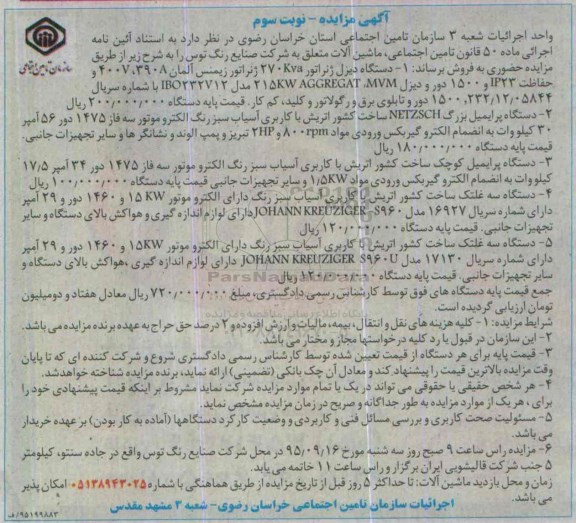 آگهی مزایده - نوبت سوم
واحد اجرائیات شعبه ۳ سازمان تامین اجتماعی استان خراسان رضوی در نظر دارد به استناد آئین نامه
اجرائی ماده ۵۰ قانون تامین اجتماعی، ماشین آلات متعلق به شرکت صنایع رنگ توس را به شرح زیر از طریق
مزایده حضوری به فروش برساند: ۱- دستگاه دیزل ژنراتور ۲۷۰Kva ژنراتور زیمنس آلمان ۴۰۰V،۳۹۰A و
حفاظت IP۲۳ و ۱۵۰۰ دور و دیزل MVM، ۲۱۵KW AGGREGAT مدل IBO۲۳۲V۱۲ با شماره سریال
۲۳۲/۱۲/۰۵۸۴۴، ۱۵۰۰ دور و تابلوی برق و رگولاتور و کلید، کم کار. قیمت پایه دستگاه ۲۰۰/۰۰۰/۰۰۰ ریال
۲- دستگاه پرایمیل بزرگ NETZSCH ساخت کشور اتریش با کاربری آسیاب سبز رنگ الکترو موتور سه فاز ۱۴۷۵ دور ۵۶ آمپر
۳۰ کیلو وات به انضمام الکترو گیربکس ورودی مواد ۸۰۰rpm و ۲HP تبریز و پمپ الوند و نشانگر ها و سایر تجهیزات جانبی.
قیمت پایه دستگاه ۱۸۰/۰۰۰/۰۰۰ ریال
۳- دستگاه پرایمیل کوچک ساخت کشور اتریش با کاربری آسیاب سبز رنگ الکترو موتور سه فاز ۱۴۷۵ دور ۳۴ آمپر ۱۷/۵
کیلو وات به انضمام الکترو گیربکس ورودی مواد ۱/۵KW و سایر تجهیزات جانبی قیمت پایه دستگاه ۱۰۰/۰۰۰/۰۰۰ ریال
۴- دستگاه سه غلتک ساخت کشور اتریش با کاربری آسیاب سبز رنگ دارای الکترو موتور ۱۵ KW و ۱۴۶۰ دور و ۲۹ آمپر
دارای شماره سریال ۱۶۹۲۷ مدل JOHANN KREUZIGER - S۹۶۰ دارای لوازم اندازه گیری و هواکش بالای دستگاه و سایر
تجهیزات جانبی. قیمت پایه دستگاه ۱۲۰/۰۰۰/۰۰۰ ریال
۵- دستگاه سه غلتک ساخت کشور اتریش با کاربری آسیاب سبز رنگ دارای الکترو موتور ۱۵KW و ۱۴۶۰ دور و ۲۹ آمپر
دارای شماره سریال ۱۷۱۳۰ مدل JOHANN KREUZIGER S۹۶۰U دارای لوازم اندازه گیری ،هواکش بالای دستگاه و
سایر تجهیزات جانبی. قیمت پایه دستگاه ۱۲۰/۰۰۰/۰۰۰ ریال
جمع قیمت پایه دستگاه های فوق توسط کارشناس رسمی دادگستری، مبلغ ۷۲۰/۰۰۰/۰۰۰ ریال معادل هفتاد و دومیلیون
تومان ارزیابی گردیده است.
شرایط مزایده: ۱- کلیه هزینه های نقل و انتقال ، بیمه، مالیات و ارزش افزوده و ۲ درصد حق حراج به عهده برنده مزایده می باشد.
۲- این سازمان در قبول یا رد کلیه درخواستها مجاز و مختار می باشد.
۳- قیمت پایه برای هر دستگاه از قیمت تعیین شده توسط کارشناس رسمی دادگستری شروع و شرکت کننده ای که تا پایان
وقت مزایده بالاترین قیمت را پیشنهاد کند و معادل آن چک بانکی (تضمینی) ارائه نماید، برنده مزایده شناخته خواهد شد.
۴- هر شخص حقیقی یا حقوقی می تواند در یک یا تمام موارد مزایده شرکت نماید مشروط بر اینکه قیمت پیشنهادی خود را
برای ، هر یک از موارد مزایده به طور جداگانه و صریح در زمان مزایده مشخص نماید.
۵- مسئولیت صحت کاربری و بررسی مسائل فنی و کاربردی و وضعیت کارکرد دستگاهها (آماده به کار بودن) بر عهده خریدار
می باشد.
۶- مزایده راس ساعت ۹ صبح روز سه شنبه مورخ ۹۵/۰۹/۱۶ در محل شرکت صنایع رنگ توس واقع در جاده سنتو، کیلومتر
۵ جنب شرکت قالیشویی ایران برگزار و راس ساعت ۱۱ خاتمه می یابد.
زمان و محل بازدید ماشین آلات: تا حداکثر ۵ روز قبل از تاریخ مزایده از طریق هماهنگی با شماره ۰۵۱۳۸۹۴۳۰۲۵ امکان پذیر
می باشد.
اجرائیات سازمان تامین اجتماعی خراسان رضوی- شعبه ۳ مشهد مقدس
۹۵۱۹۹۸۸۳/ف
سازمان تامین اجتماعی